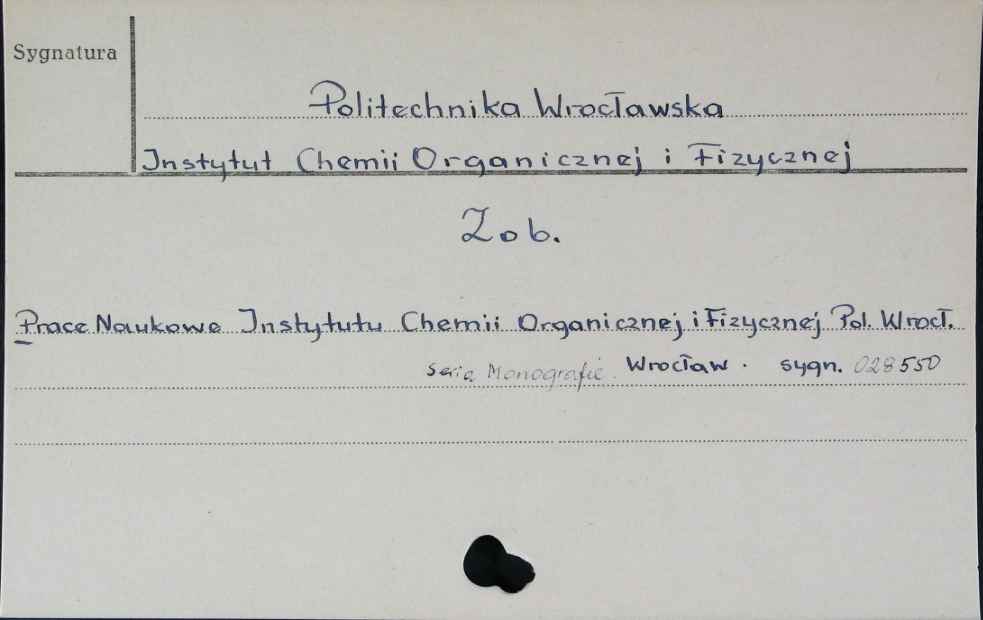 Sygnatura
Politechnika Wrocławska
Instytut Chemii Organicznej i Fizycznej
Zob.
Prace Naukowe Instytutu Chemii Organicznej i Fizycznej Pol. Wrocł.
Seria Monografie. Wrocław. sygn. 028550